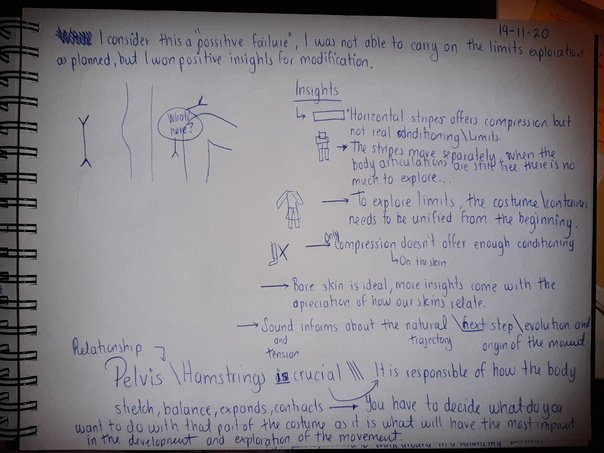 19-11-20
I consider this a "possitive failure", I was not able to carry on the limits exploration
as planned, but I won positive insights for modification.
Insights
What's here?
"Horizontal stripes offers compression but
not real conditioning\Limits.
The stripes move separately, when the
body articulations are still free there is no
much to explore...
To explore limits, the costume\container
needs to be unified from the beginning.
only
Compression doesn't offer enough conditioning
On the skin
Bare skin is ideal, more insights come with the
apreciation of how our skins relate.
Sound informs about the natural \next step\evolution and
and tension
trajectory
origin of the movement
Relationship
Pelvis \Hamstrings is crucial \\\ It is responsible of how the body
stretch, balance, expands, contracts → You have to decide what do you
want to do with that part of the costume as it is what will have the most impact
in the development and exploration of the movement.